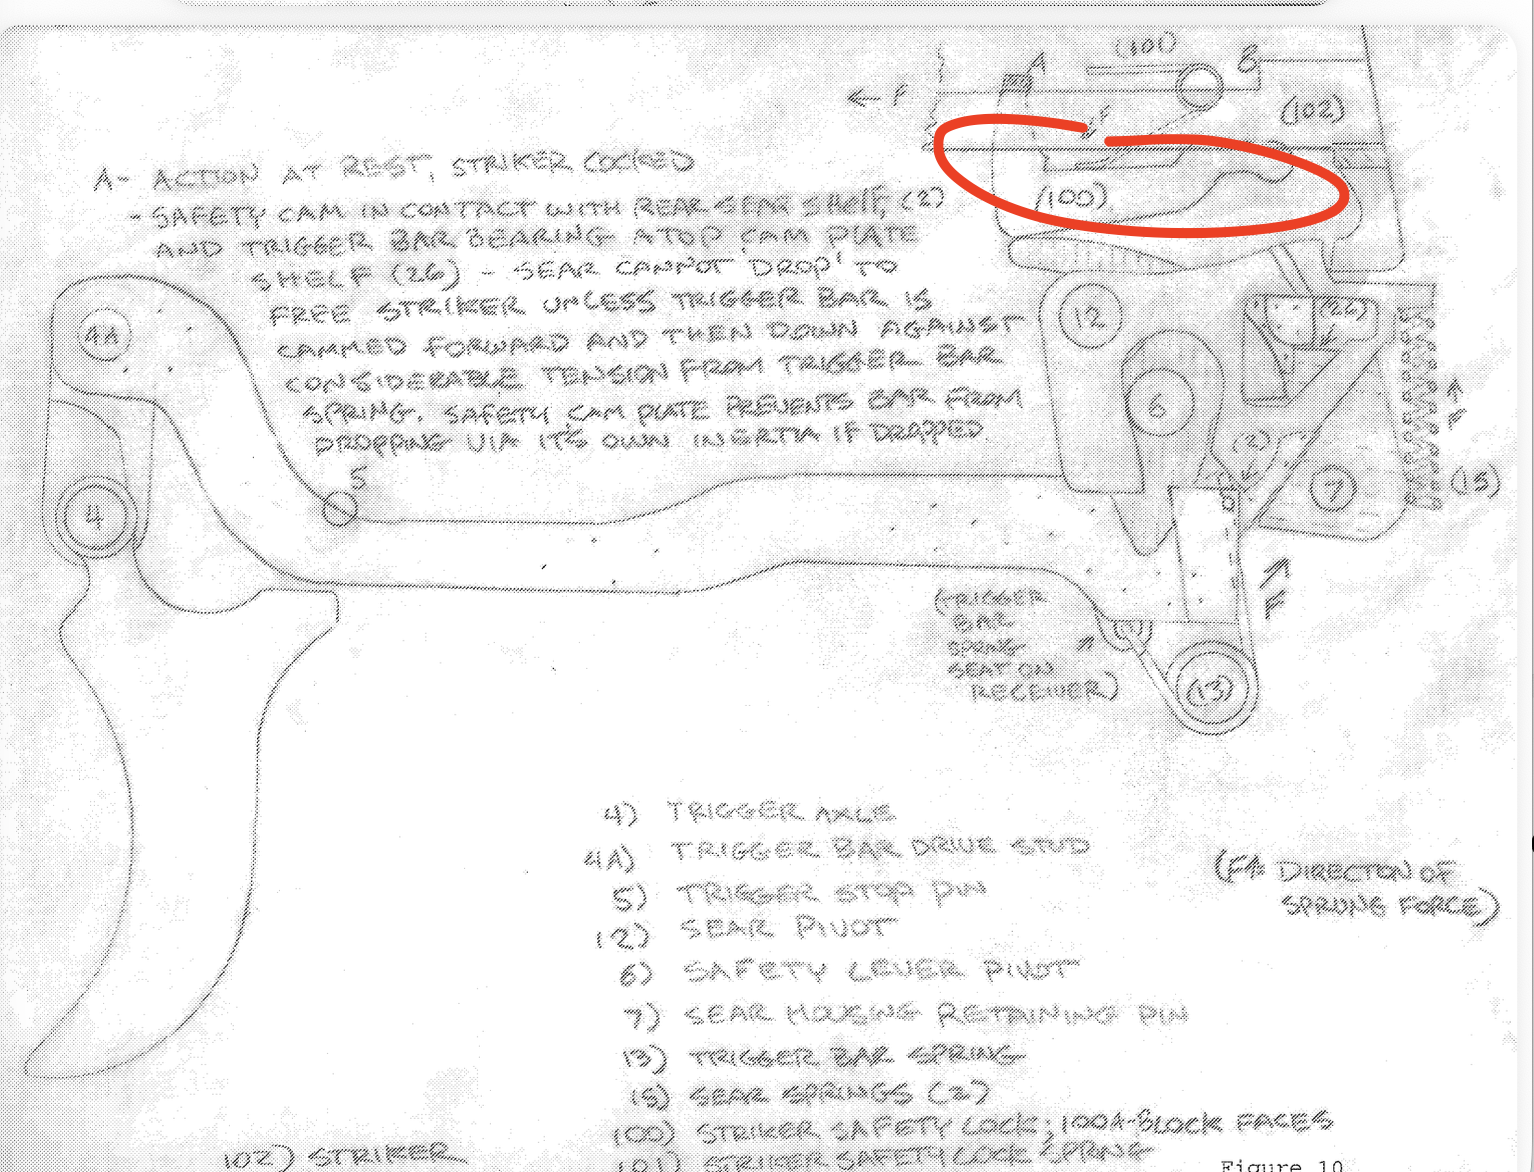 (100)
A
B
← F
F
(102)
(100)
A- ACTION AT REST, STRIKER COCKED
- SAFETY CAM IN CONTACT WITH REAR SEAR SHELF, (2)
AND TRIGGER BAR BEARING ATOP CAM PLATE
SHELF (26) - SEAR CANNOT 'DROP' TO
FREE STRIKER UNLESS TRIGGER BAR IS
CAMMED FORWARD AND THEN DOWN AGAINST
CONSIDERABLE TENSION FROM TRIGGER BAR
SPRING. SAFETY CAM PLATE PREVENTS BAR FROM
DROPPING VIA IT'S OWN INERTIA IF DROPPED
4A
12
(26)
6
F
(2)
7
(15)
5
4
F
(TRIGGER
BAR
SPRING
SEAT ON
RECEIVER)
(13)
4) TRIGGER AXLE
4A) TRIGGER BAR DRIVE STUD
5) TRIGGER STOP PIN
12) SEAR PIVOT
6) SAFETY LEVER PIVOT
7) SEAR HOUSING RETAINING PIN
13) TRIGGER BAR SPRING
15) SEAR SPRINGS (2)
100) STRIKER SAFETY LOCK; 100A-B LOCK FACES
101) STRIKER SAFETY LOCK SPRING
102) STRIKER
(F↑ DIRECTON OF
SPRUNG FORCE)
Figure 10